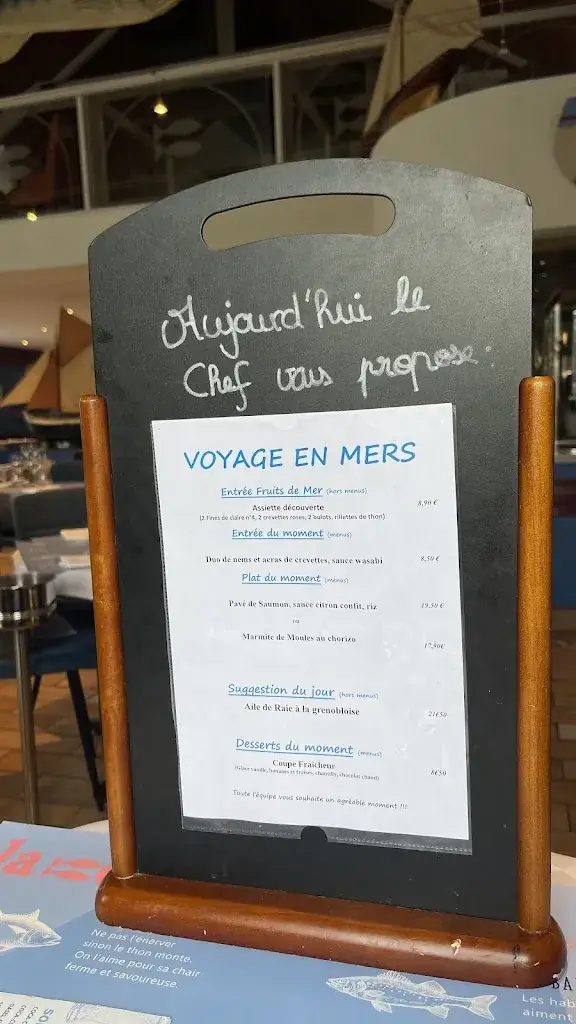 Aujourd'hui le
Chef vous propose.
VOYAGE EN MERS
Entrée Fruits de Mer (hors menus)
Assiette découverte 8,90 €
(2 fines de claire n°4, 2 crevettes roses, 2 bulots, rillettes de thon)
Entrée du moment (menus)
Duo de nems et acras de crevettes, sauce wasabi 8,50 €
Plat du moment (menus)
Pavé de Saumon, sauce citron confit, riz 19,50 €
ou
Marmite de Moules au chorizo 17,90€
Suggestion du jour (hors menus)
Aile de Raie à la grenobloise 21€50
Desserts du moment (menus)
Coupe Fraicheur 8€50
(Glace vanille, bananes et fraises, chantilly, chocolat chaud)
Toute l'équipe vous souhaite un agréable moment !!!
la
Ne pas l'énerver
sinon le thon monte.
On l'aime pour sa chair
ferme et savoureuse.
BA
Les hab
aiment